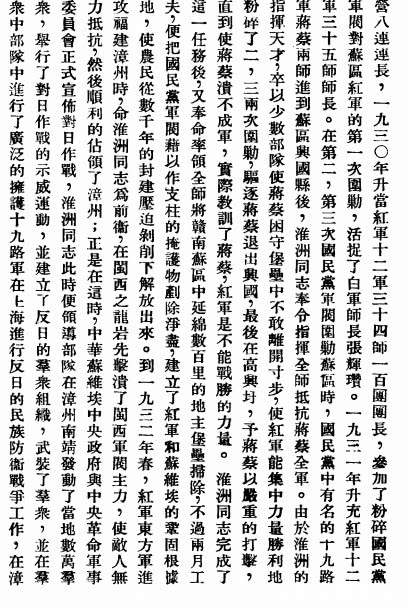 營八連連長，一九三〇年升當紅軍十二軍三十四師一百團團長，參加了粉碎國民黨
軍閥對蘇區紅軍的第一次圍勦，活捉了白軍師長張輝瓚。一九三一年升充紅軍十二
軍三十五師師長。在第二，第三次國民黨軍閥圍勦蘇區時，國民黨中有名的十九路
軍蔣蔡兩師進到蘇區興國縣後，淮洲同志奉令指揮全師抵抗蔣蔡全軍。由於淮洲的
指揮天才，卒以少數部隊使蔣蔡困守堡壘中不敢離開寸步，使紅軍能集中力量勝利地
粉碎了二，三兩次圍勦，驅逐蔣蔡退出興國，最後在高興圩，予蔣蔡以嚴重的打擊，
直到使蔣蔡潰不成軍，實際教訓了蔣蔡，紅軍是不能戰勝的力量。淮洲同志完成了
這一任務後，又奉命率領全師將贛南蘇區中延綿數百里的地主堡壘掃除，不過兩月工
夫，便把國民黨軍閥藉以作支柱的掩護物剷除淨盡，建立了紅軍和蘇維埃的鞏固根據
地，使農民從數千年的封建壓迫剝削下解放出來。到一九三二年春，紅軍東方軍進
攻福建漳州時，命淮洲同志爲前衛，在閩西之龍岩先擊潰了閩西軍閥主力，使敵人無
力抵抗，然後順利的佔領了漳州；正是在這時，中華蘇維埃中央政府與中央革命軍事
委員會正式宣佈對日作戰，淮洲同志此時便領導部隊在漳州南靖發動了當地數萬羣
衆，舉行了對日作戰的示威運動，並建立了反日的羣衆組織，武裝了羣衆，並在羣
衆中部隊中進行了廣泛的擁護十九路軍在上海進行反日的民族防衛戰爭工作，在漳